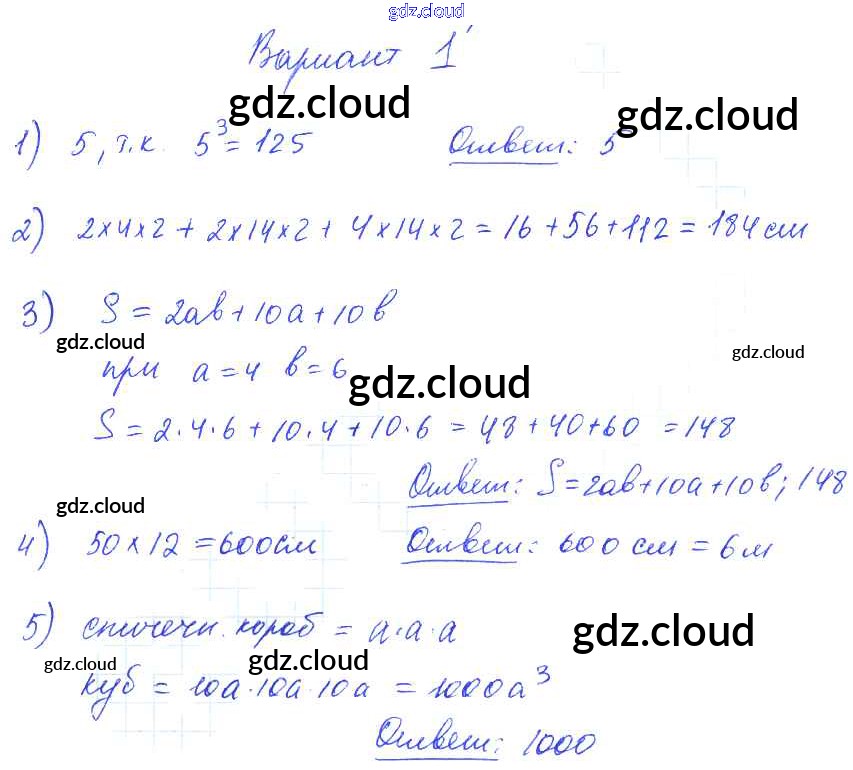 gdz.cloud
Вариант 1
gdz.cloud
gdz.cloud
1) 5, т.к. 5³ = 125 Ответ: 5
2) 2×4×2 + 2×14×2 + 4×14×2 = 16 + 56 + 112 = 184 см
3) S = 2ab + 10a + 10b
gdz.cloud
gdz.cloud
при a = 4 b = 6
gdz.cloud
S = 2·4·6 + 10·4 + 10·6 = 48 + 40 + 60 = 148
Ответ: S = 2ab + 10a + 10b; 148
gdz.cloud
4) 50 × 12 = 600 см Ответ: 600 см = 6 м
5) спичечн. короб = a·a·a
gdz.cloud
gdz.cloud
gdz.cloud
куб = 10a·10a·10a = 1000a³
Ответ: 1000